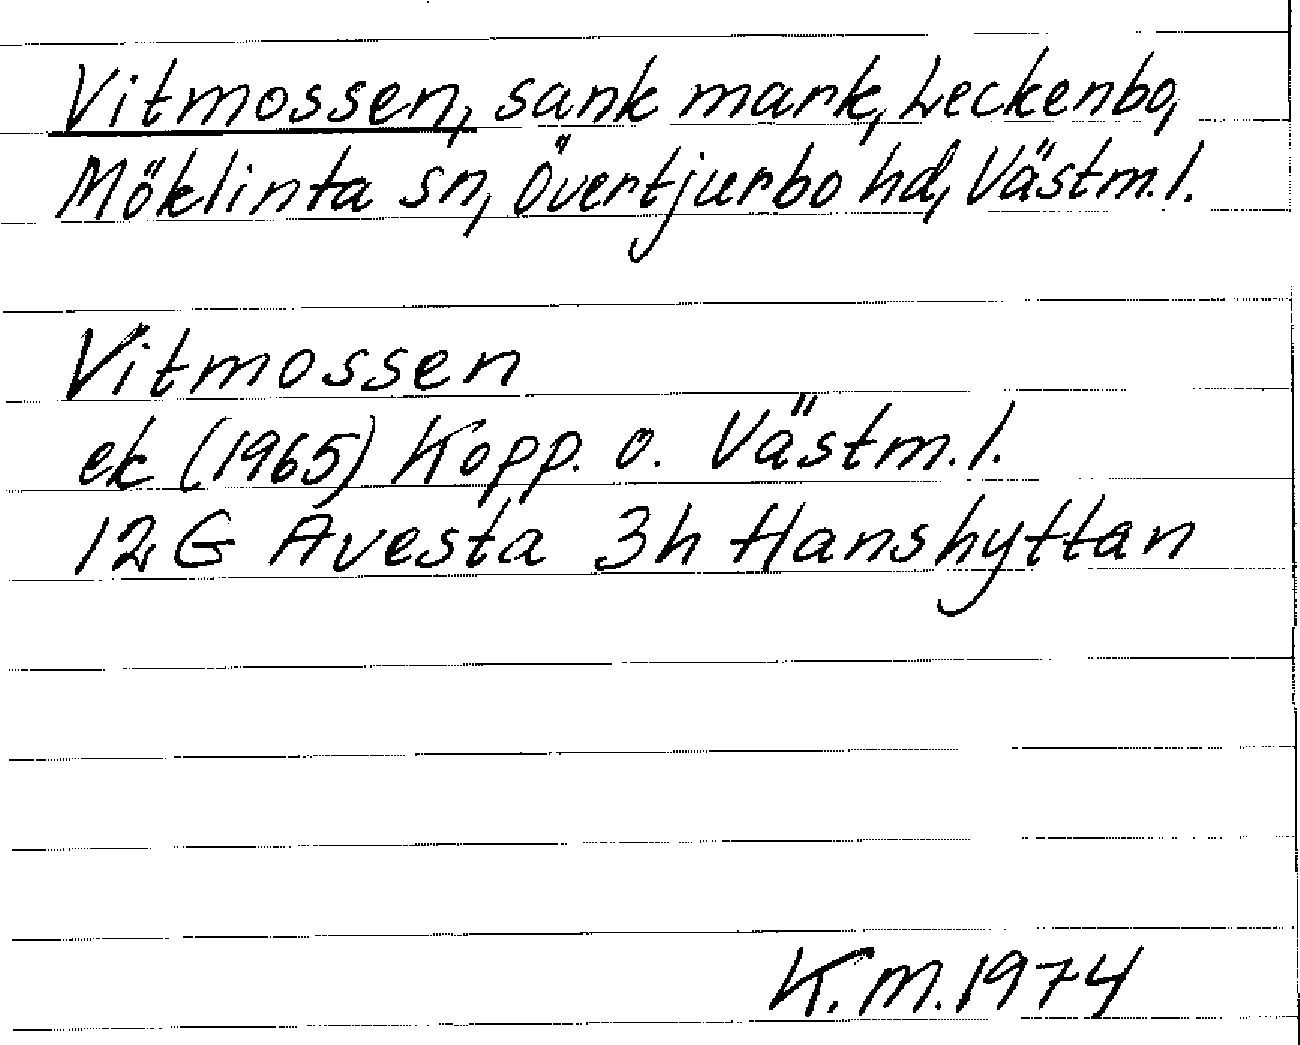 Vitmossen, sank mark, Leckenbo,
Möklinta sn, Övertjurbo hd, Västm.l.
Vitmossen
ek (1965) Kopp. o. Västm.l.
12G Avesta 3h Hanshyttan
K.M.1974